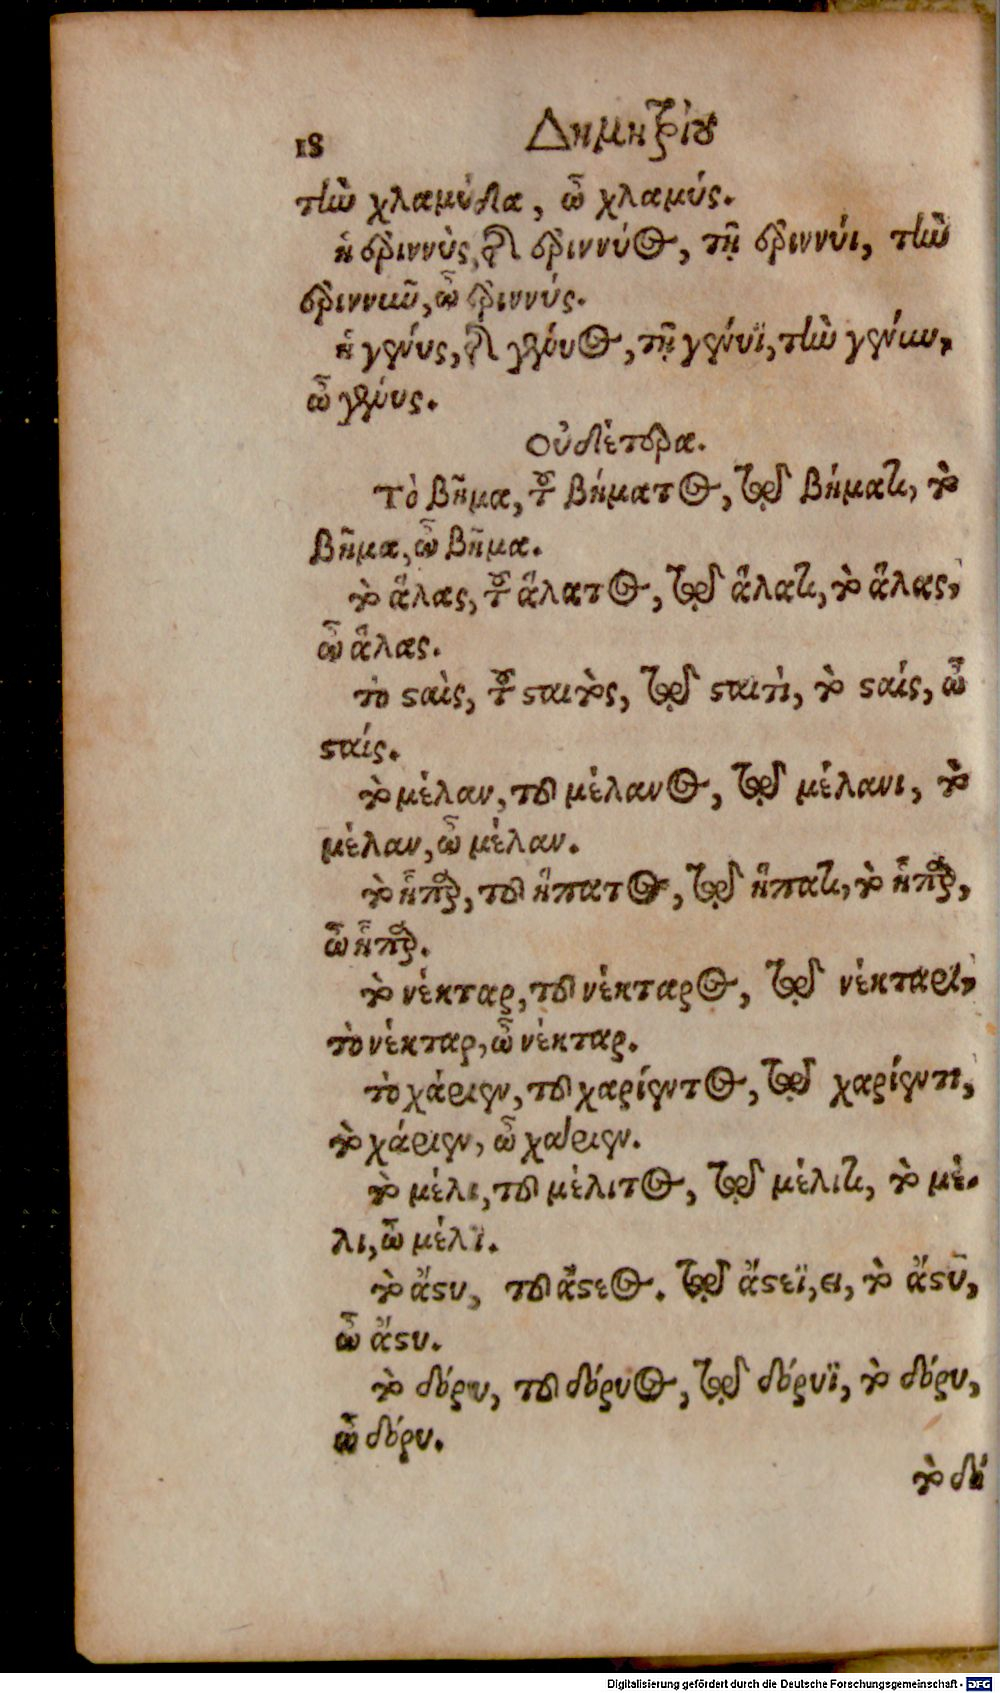 18 Δημητρίου
τὴν χλαμύδα, ὦ χλαμύς.
ἡ ἐριννὺς, τῆς ἐριννύος, τῇ ἐριννύι, τὴν
ἐριννῦν, ὦ ἐριννύς.
ἡ γένυς, τῆς γένυος, τῇ γένυϊ, τὴν γένυν,
ὦ γένυς.
Οὐδέτερα.
Τὸ βῆμα, τοῦ βήματος, τῷ βήματι, τὸ
βῆμα, ὦ βῆμα.
τὸ ἅλας, τοῦ ἅλατος, τῷ ἅλατι, τὸ ἅλας,
ὦ ἅλας.
τὸ σταὶς, τοῦ σταιτὸς, τῷ σταιτὶ, τὸ σταίς, ὦ
σταίς.
τὸ μέλαν, τοῦ μέλανος, τῷ μέλανι, τὸ
μέλαν, ὦ μέλαν.
τὸ ἧπαρ, τοῦ ἥπατος, τῷ ἥπατι, τὸ ἧπαρ,
ὦ ἧπαρ.
τὸ νέκταρ, τοῦ νέκταρος, τῷ νέκταρι,
τὸ νέκταρ, ὦ νέκταρ.
τὸ χάριεν, τοῦ χαρίεντος, τῷ χαρίεντι,
τὸ χάριεν, ὦ χάριεν.
τὸ μέλι, τοῦ μέλιτος, τῷ μέλιτι, τὸ μέ-
λι, ὦ μέλι.
τὸ ἄστυ, τοῦ ἄστεος. τῷ ἄστεϊ, ει, τὸ ἄστυ,
ὦ ἄστυ.
τὸ δόρυ, τοῦ δόρυος, τῷ δόρυϊ, τὸ δόρυ,
ὦ δόρυ.
τὸ δά
Digitalisierung gefördert durch die Deutsche Forschungsgemeinschaft - DFG